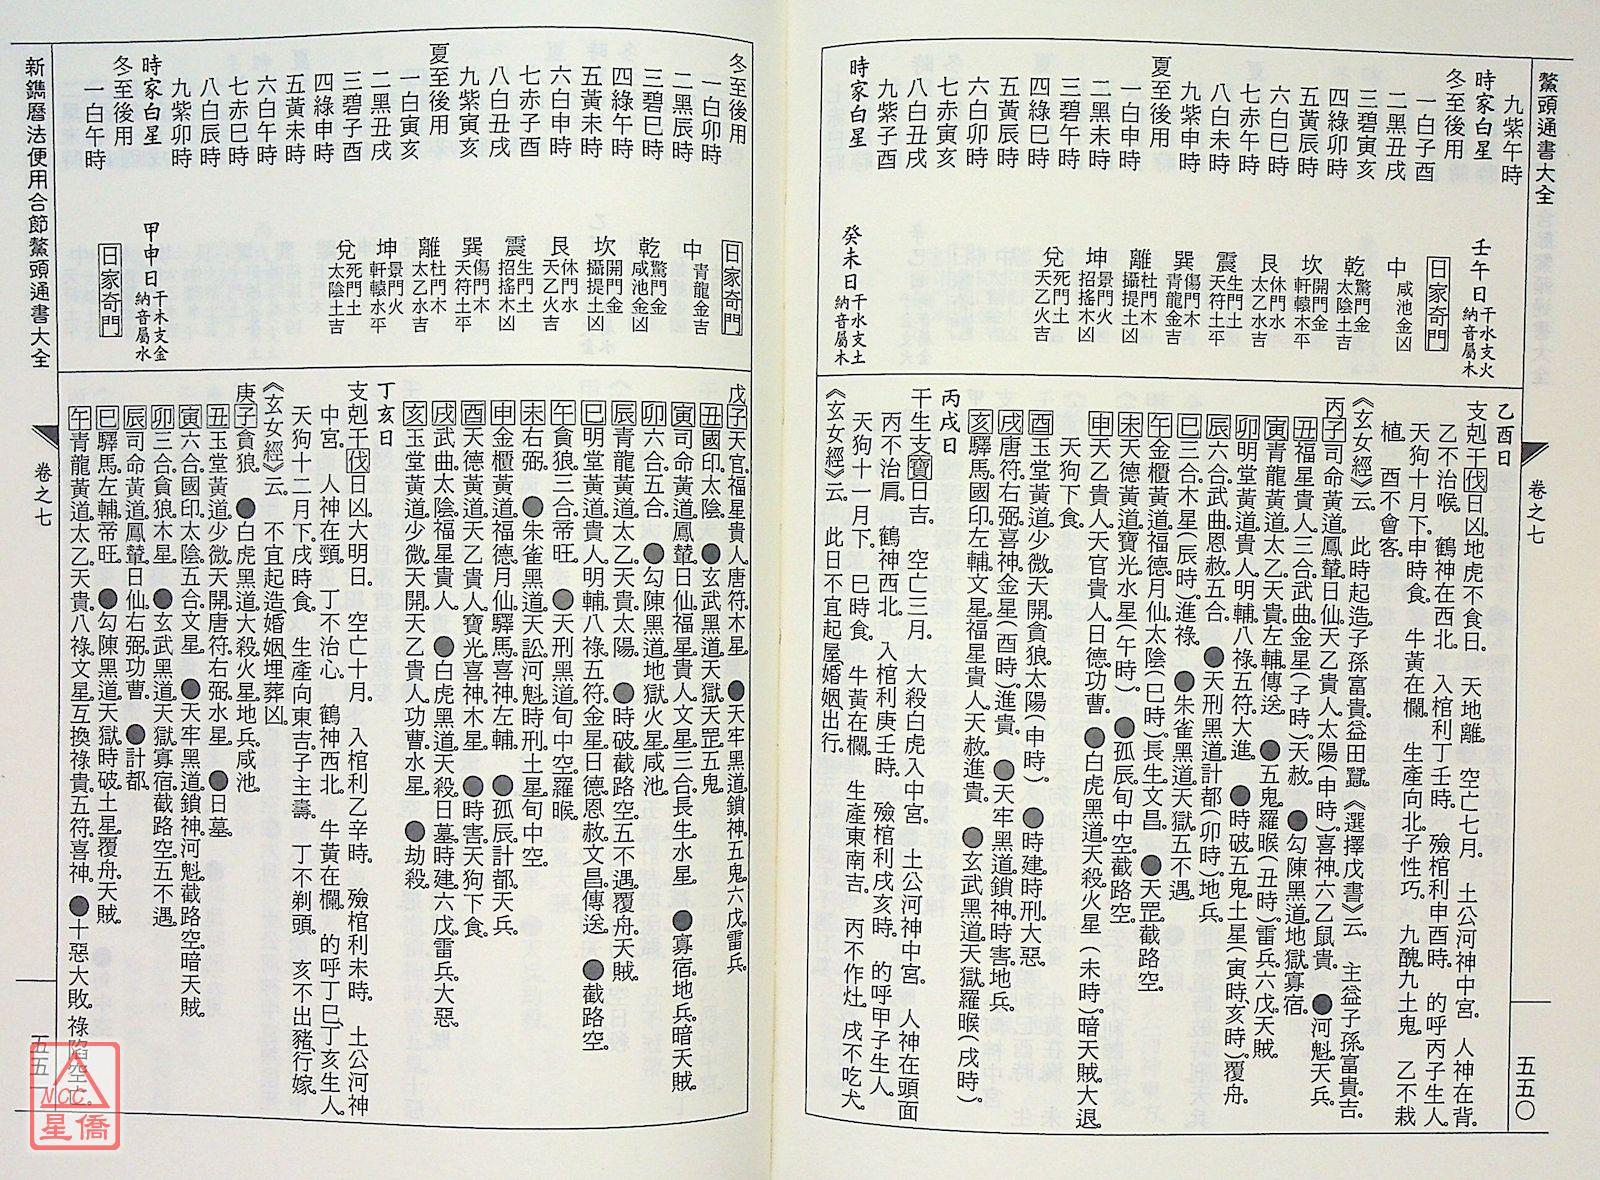 鰲頭通書大全
卷之七
五五〇
九紫午時
時家白星
冬至後用
一白子酉
二黑丑戌
三碧寅亥
四綠卯時
五黃辰時
六白巳時
七赤午時
八白未時
九紫申時
夏至後用
一白申時
二黑未時
三碧午時
四綠巳時
五黃辰時
六白卯時
七赤寅亥
八白丑戌
九紫子酉
時家白星
壬午日干水支火
納音屬木
日家奇門
中 咸池金凶
乾驚門金
太陰土吉
坎開門金
軒轅木平
艮休門水
太乙水吉
震生門土
天符土平
巽傷門木
青龍金吉
離杜門木
攝提土凶
坤景門火
招搖木凶
兌死門土
天乙火吉
癸未日干水支土
納音屬木
乙酉日
支剋干伐日凶地虎不食日。 天地離。 空亡七月。 土公河神中宮。 人神在背。
乙不治喉。 鶴神在西北。 入棺利丁壬時。 殮棺利申酉時。 的呼丙子生人。
天狗十月下申時食。 牛黃在欄。 生產向北子性巧。 九醜九土鬼。 乙不栽
植。 酉不會客。
《玄女經》云。 此時起造子孫富貴益田蠶。《選擇戊書》云。 主益子孫富貴。吉。
丙子司命黃道鳳輦日仙天乙貴人太陽(申時)喜神六乙鼠貴。●河魁天兵。
丑福星貴人三合武曲金星(子時)天赦。●勾陳黑道地獄寡宿。
寅青龍黃道太乙天貴左輔傳送。●五鬼羅睺(丑時)雷兵六戊天賊。
卯明堂黃道貴人明輔八祿五符大進。●時破五鬼土星(寅時亥時)覆舟。
辰六合武曲恩赦五合。●天刑黑道計都(卯時)地兵。
巳三合木星(辰時)進祿。●朱雀黑道天獄五不遇。
午金櫃黃道福德月仙太陰(巳時)長生文昌。●天罡截路空。
未天德黃道寶光水星(午時)。●孤辰旬中空截路空。
申天乙貴人天官貴人日德功曹。●白虎黑道天殺火星(未時)暗天賊大退。
天狗下食。
酉玉堂黃道少微天開貪狼太陽(申時)。●時建時刑大惡。
戌唐符右弼喜神金星(酉時)進貴。●天牢黑道鎖神時害地兵。
亥驛馬國印左輔文星福星貴人天赦進貴。●玄武黑道天獄羅睺(戌時)。
丙戌日
干生支寶日吉。 空亡三月。 大殺白虎入中宮。 土公河神中宮。 人神在頭面
丙不治肩。 鶴神西北。 入棺利庚壬時。 殮棺利戌亥時。 的呼甲子生人。
天狗十一月下。 巳時食。 牛黃在欄。 生產東南吉。 丙不作灶。戌不吃犬。
《玄女經》云。 此日不宜起屋婚姻出行。
冬至後用
一白卯時
二黑辰時
三碧巳時
四綠午時
五黃未時
六白申時
七赤子酉
八白丑戌
九紫寅亥
夏至後用
一白寅亥
二黑丑戌
三碧子酉
四綠申時
五黃未時
六白午時
七赤巳時
八白辰時
九紫卯時
時家白星
冬至後用
一白午時
日家奇門
中 青龍金吉
乾驚門金
咸池金凶
坎開門金
攝提土凶
艮休門水
天乙火吉
震生門土
招搖木凶
巽傷門木
天符土平
離杜門木
太乙水吉
坤景門火
軒轅水平
兌死門土
太陰土吉
甲申日干木支金
納音屬水
日家奇門
戊子天官福星貴人唐符木星。●天牢黑道鎖神五鬼六戊雷兵。
丑國印太陰。●玄武黑道天獄天罡五鬼。
寅司命黃道鳳輦日仙福星貴人文星三合長生水星。●寡宿地兵暗天賊。
卯六合五合。●勾陳黑道地獄火星咸池。
辰青龍黃道太乙天貴太陽。●時破截路空五不遇覆舟天賊。
巳明堂黃道貴人明輔八祿五符金星日德恩赦文昌傳送。●截路空。
午貪狼三合帝旺。●天刑黑道旬中空羅睺。
未右弼。●朱雀黑道天訟河魁時刑土星旬中空。
申金櫃黃道福德月仙驛馬喜神左輔。●孤辰計都天兵。
酉天德黃道天乙貴人寶光喜神木星。●時害天狗下食。
戌武曲太陰福星貴人。●白虎黑道天殺日墓時建六戊雷兵大惡。
亥玉堂黃道少微天開天乙貴人功曹水星。●劫殺。
丁亥日
支剋干伐日凶大明日。 空亡十月。 入棺利乙辛時。 殮棺利未時。 土公河神
中宮。 人神在頸。 丁不治心。 鶴神西北。 牛黃在欄。 的呼丁巳丁亥生人。
天狗十二月下戌時食。 生產向東吉子主壽。 丁不剃頭。 亥不出豬行嫁。
《玄女經》云。 不宜起造婚姻埋葬凶。
庚子貪狼。●白虎黑道大殺火星地兵咸池。
丑玉堂黃道少微天開唐符右弼水星。●日墓。
寅六合國印太陰五合文星。●天牢黑道鎖神河魁截路空暗天賊。
卯三合貪狼木星。●玄武黑道天獄寡宿截路空五不遇。
辰司命黃道鳳輦日仙右弼功曹。●計都。
巳驛馬左輔帝旺。●勾陳黑道天獄時破土星覆舟天賊。
午青龍黃道太乙天貴八祿文星互換祿貴五符喜神。●十惡大敗。祿陷空亡。
新鐫曆法便用合節鰲頭通書大全
卷之七
五五一
NCC
星僑